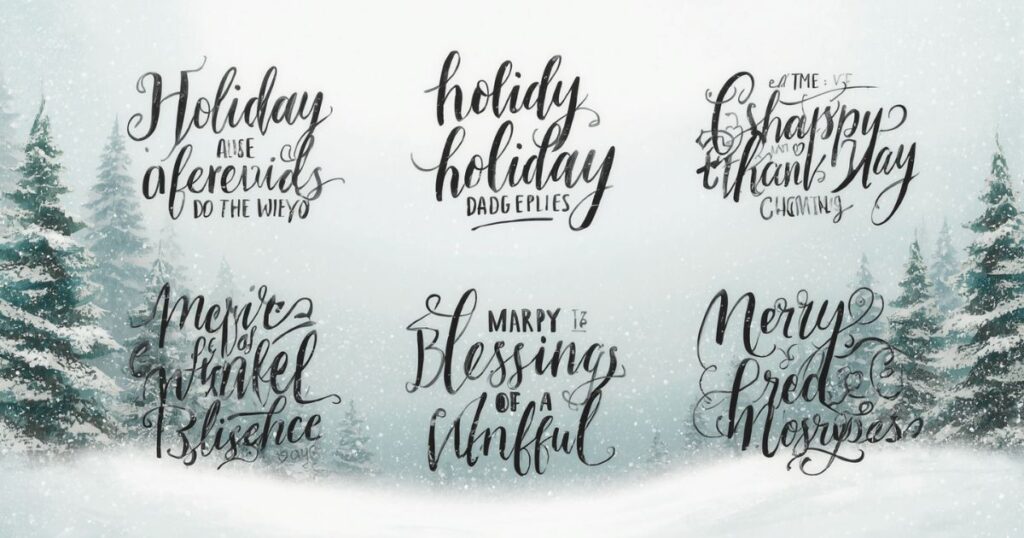 Holiday
AUSE
aferevids
DO THE WIEYO
holidy
holiday
DADGEPLIES
TME
Gshappy
thank Yay
Merire
Wunkel
Blisehce
MARPY
Blessings
OF A
Wnfful
Merry
bred
Mosrypass